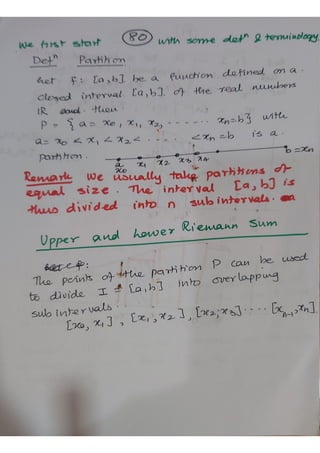 80
We first start with some defn & terminology
Defn Partition
Let f: [a,b] be a function defined on a
closed interval [a,b] of the real numbers
IR then
P = { a = x0, x1, x2, ------- xn=b} with
a= x0 < x1 < x2 < ---- <xn=b is a
partition.
a x0 x1 x2 x3 x4 b=xn
Remark We usually take partitions of
equal size. The interval [a,b] is
thus divided into n subintervals.
Upper and Lower Riemann Sum
The points of the partition P can be used
to divide I = [a,b] into overlapping
sub intervals.
[x0, x1], [x1, x2], [x2, x3] .... [xn-1, xn]